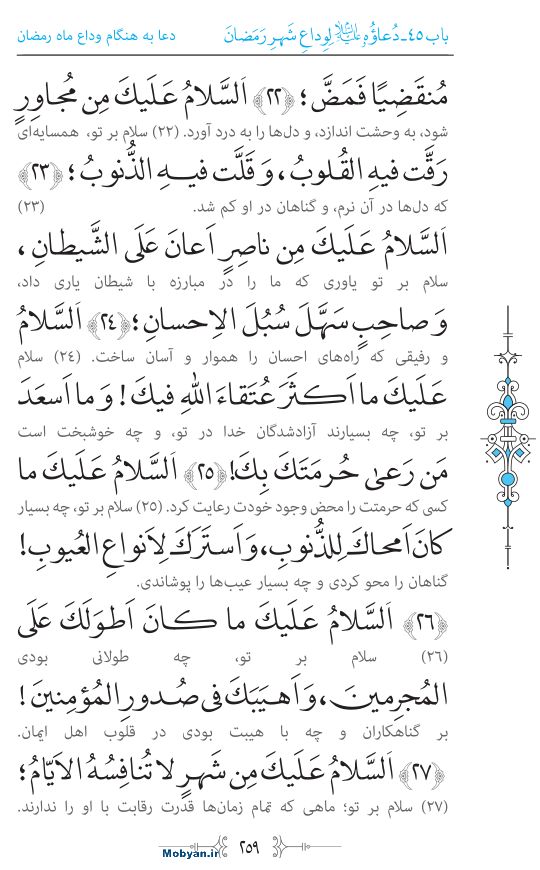 باب ٤٥ـ دُعاؤُهُ عليه‌السلام لِوِداعِ شَهرِ رَمَضانَ دعا به هنگام وداع ماه رمضان
مُنقَضِيًا فَمَضَّ؛ ﴿٢٢﴾ اَلسَّلامُ عَلَيكَ مِن مُجاوِرٍ
شود، به وحشت اندازد، و دل‌ها را به درد آورد. (۲۲) سلام بر تو، همسایه‌ای
رَقَّت فيهِ القُلوبُ، وَ قَلَّت فيـهِ الذُّنوبُ؛ ﴿٢٣﴾
که دل‌ها در آن نرم، و گناهان در او کم شد. (۲۳)
اَلسَّلامُ عَلَيكَ مِن ناصِرٍ اَعانَ عَلَى الشَّيطانِ،
سلام بر تو یاوری که ما را در مبارزه با شیطان یاری داد،
وَ صاحِبٍ سَهَّلَ سُبُلَ الاِحسانِ؛ ﴿٢٤﴾ اَلسَّلامُ
و رفیقی که راه‌های احسان را هموار و آسان ساخت. (۲۴) سلام
عَلَيكَ ما اَكثَرَ عُتَقاءَ اللهِ فيكَ! وَ ما اَسعَدَ
بر تو، چه بسیارند آزادشدگان خدا در تو، و چه خوشبخت است
مَن رَعىٰ حُرمَتَكَ بِكَ! ﴿٢٥﴾ اَلسَّلامُ عَلَيكَ ما
کسی که حرمتت را محض وجود خودت رعایت کرد. (۲۵) سلام بر تو، چه بسیار
كانَ اَمحاكَ لِلذُّنوبِ، وَ اَستَرَكَ لِاَنواعِ العُيوبِ!
گناهان را محو کردی و چه بسیار عیب‌ها را پوشاندی.
﴿٢٦﴾ اَلسَّلامُ عَلَيكَ ما كـانَ اَطوَلَكَ عَلَى
(۲۶) سلام بر تو، چه طولانی بودی
المُجرِمينَ، وَ اَهيَبَكَ فى صُدورِ المُؤمِنينَ!
بر گناهکاران و چه با هیبت بودی در قلوب اهل ایمان.
﴿٢٧﴾ اَلسَّلامُ عَلَيكَ مِن شَهرٍ لا تُنافِسُهُ الاَيّامُ؛
(۲۷) سلام بر تو؛ ماهی که تمام زمان‌ها قدرت رقابت با او را ندارند.
٢٥٩
Mobyan.ir